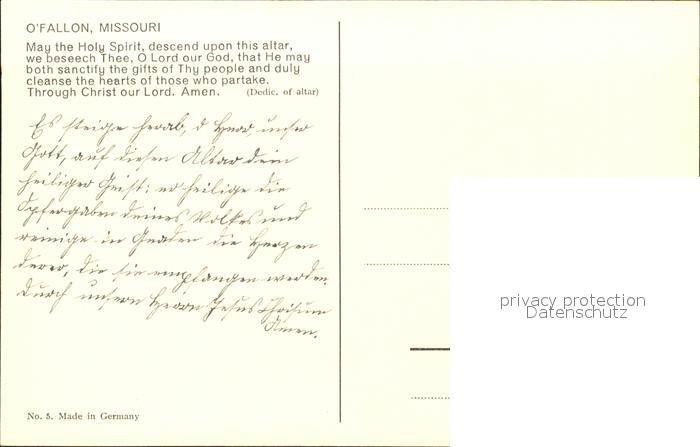 O'FALLON, MISSOURI
May the Holy Spirit, descend upon this altar,
we beseech Thee, O Lord our God, that He may
both sanctify the gifts of Thy people and duly
cleanse the hearts of those who partake.
Through Christ our Lord. Amen. (Dedic. of altar)
Es steige herab, o Herr unser
Gott, auf diesen Altar dein
heiliger Geist: er heilige die
Opfergaben deines Volkes und
reinige in Gnaden die Herzen
derer, die sie empfangen werden.
Durch unsern Herrn Jesus Christum
Amen.
No. 5. Made in Germany
privacy protection
Datenschutz